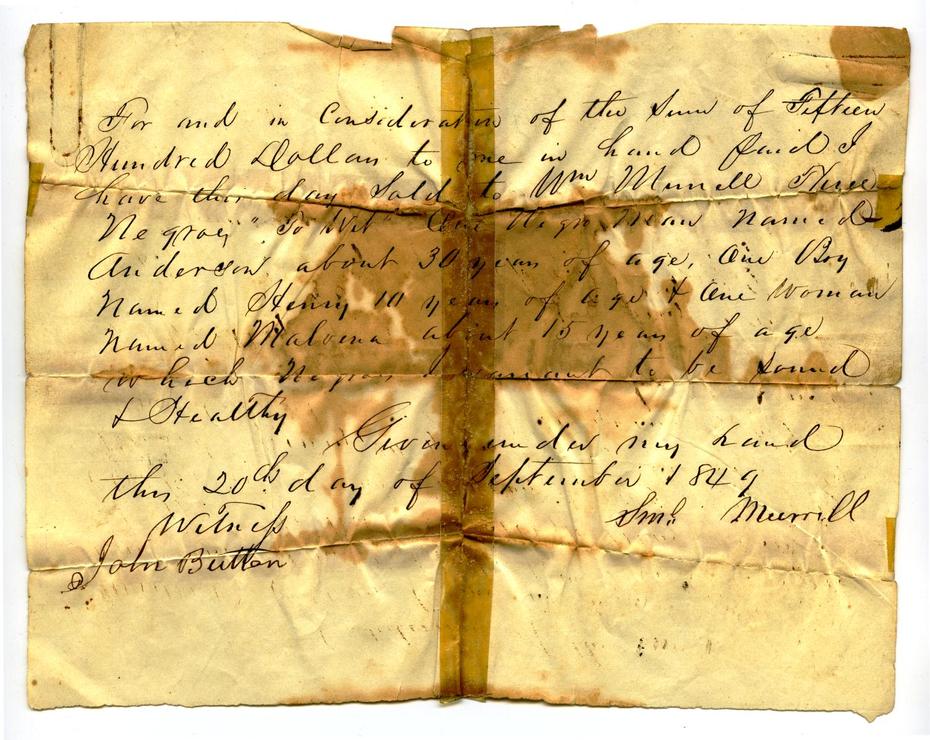 For and in Consideration of the Sum of Fifteen
Hundred Dollars to me in hand paid I
have this day Sold to Wm Murrell Three
Negroes "To Wit" One Negro Man named
Anderson about 30 years of age, One Boy
Named Henry 10 years of age & One Woman
Named Malvina about 15 years of age
which Negroes I warrant to be sound
& Healthy
Given under my hand
this 20th day of September 1849
Murrell
Witness
John Button